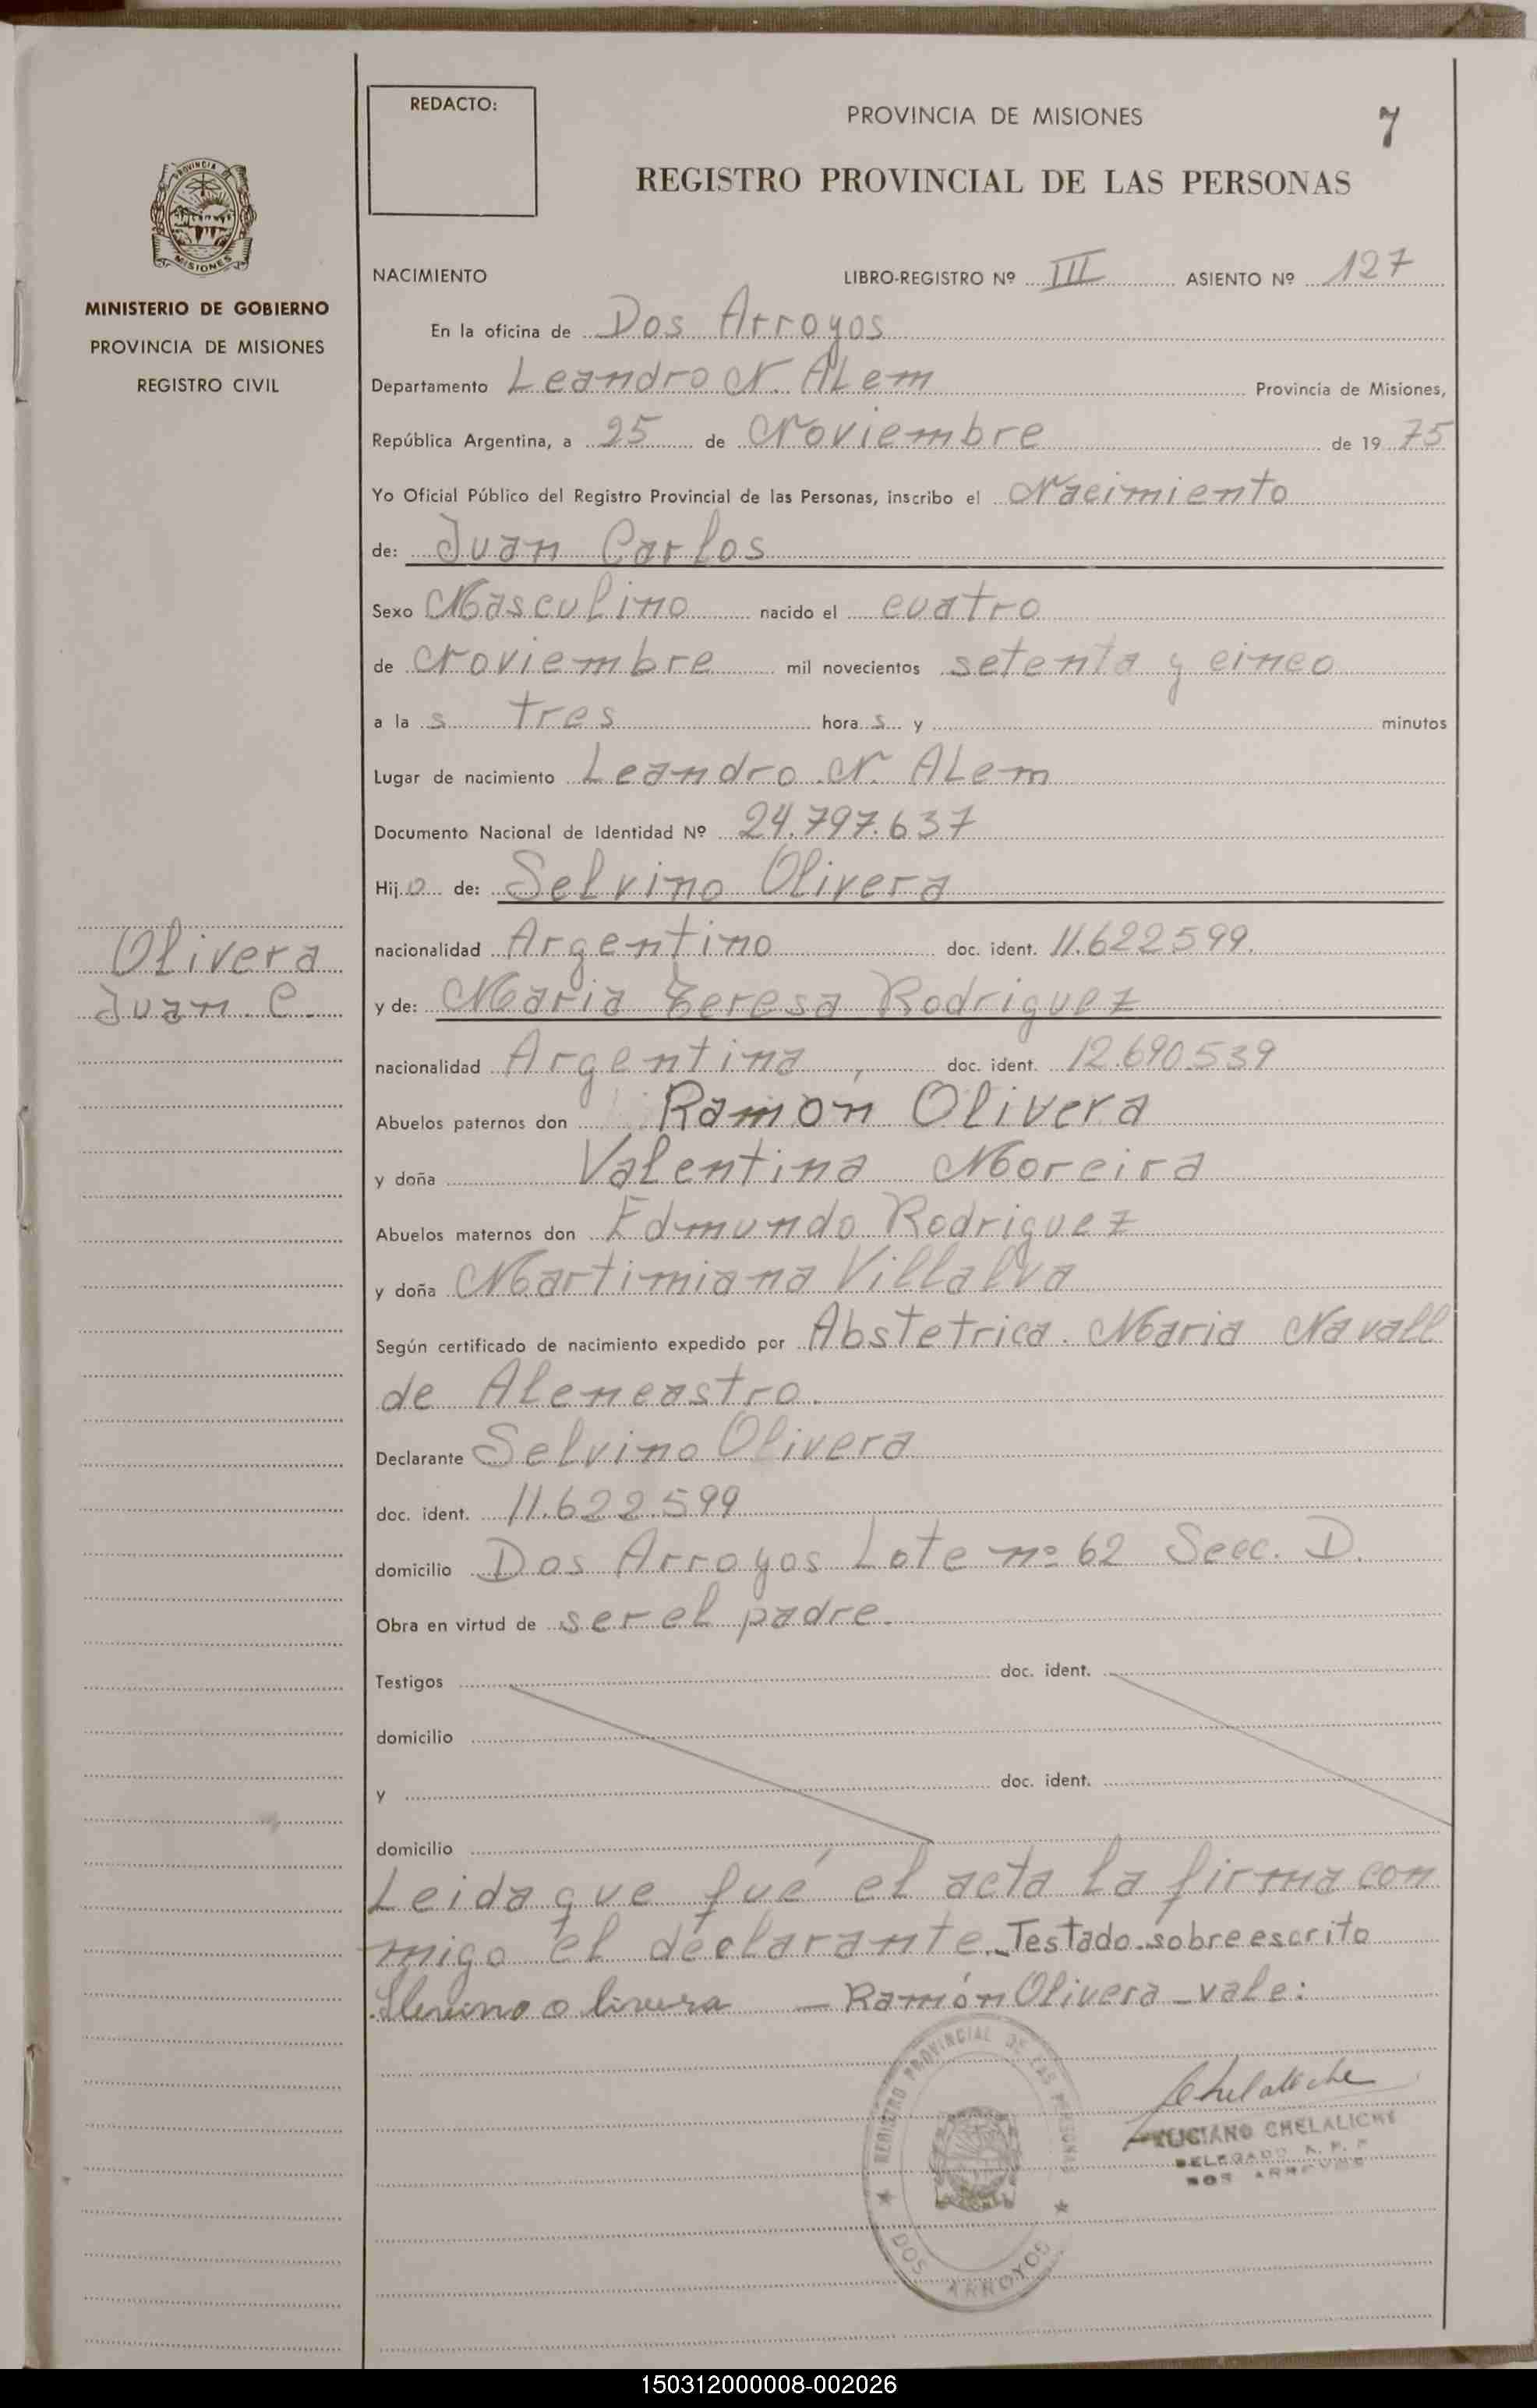 REDACTO:
PROVINCIA DE MISIONES
7
REGISTRO PROVINCIAL DE LAS PERSONAS
PROVINCIA
MISIONES
MINISTERIO DE GOBIERNO
PROVINCIA DE MISIONES
REGISTRO CIVIL
NACIMIENTO LIBRO-REGISTRO Nº III ASIENTO Nº 127
En la oficina de Dos Arroyos
Departamento Leandro N. ALem Provincia de Misiones,
República Argentina, a 25 de Noviembre de 19 75
Yo Oficial Público del Registro Provincial de las Personas, inscribo el Nacimiento
de: Juan Carlos
Sexo Masculino nacido el cuatro
de Noviembre mil novecientos setenta y cinco
a la s tres hora s y minutos
Lugar de nacimiento Leandro N. ALem
Documento Nacional de Identidad Nº 24.797.637
Hij o de: Selvino Olivera
Olivera
Juan C.
nacionalidad Argentino doc. ident. 11.622599.
y de: Maria Teresa Rodriguez
nacionalidad Argentina, doc. ident. 12.690.539
Abuelos paternos don Ramón Olivera
y doña Valentina Moreira
Abuelos maternos don Edmundo Rodriguez
y doña Martimiana Villalva
Según certificado de nacimiento expedido por Abstetrica. Maria Navall
de Alencastro.
Declarante Selvino Olivera
doc. ident. 11.622.599
domicilio Dos Arroyos Lote nº 62 Secc. D.
Obra en virtud de ser el padre.
Testigos doc. ident.
domicilio
y doc. ident.
domicilio
Leida que fué el acta la firma con
migo el declarante. Testado sobreescrito
olivera — Ramón Olivera - vale:
REGISTRO PROVINCIAL DE LAS PERSONAS
DOS ARROYOS
Chelaliche
FELICIANO CHELALICHE
DELEGADO R. P. P.
DOS ARROYOS
150312000008-002026